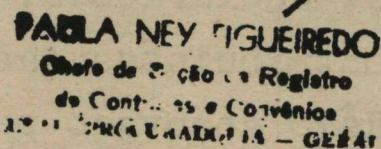 PAULA NEY FIGUEIREDO
Chefe da Seção de Registro
de Contratos e Convênios
PROCURADORIA — GERAL